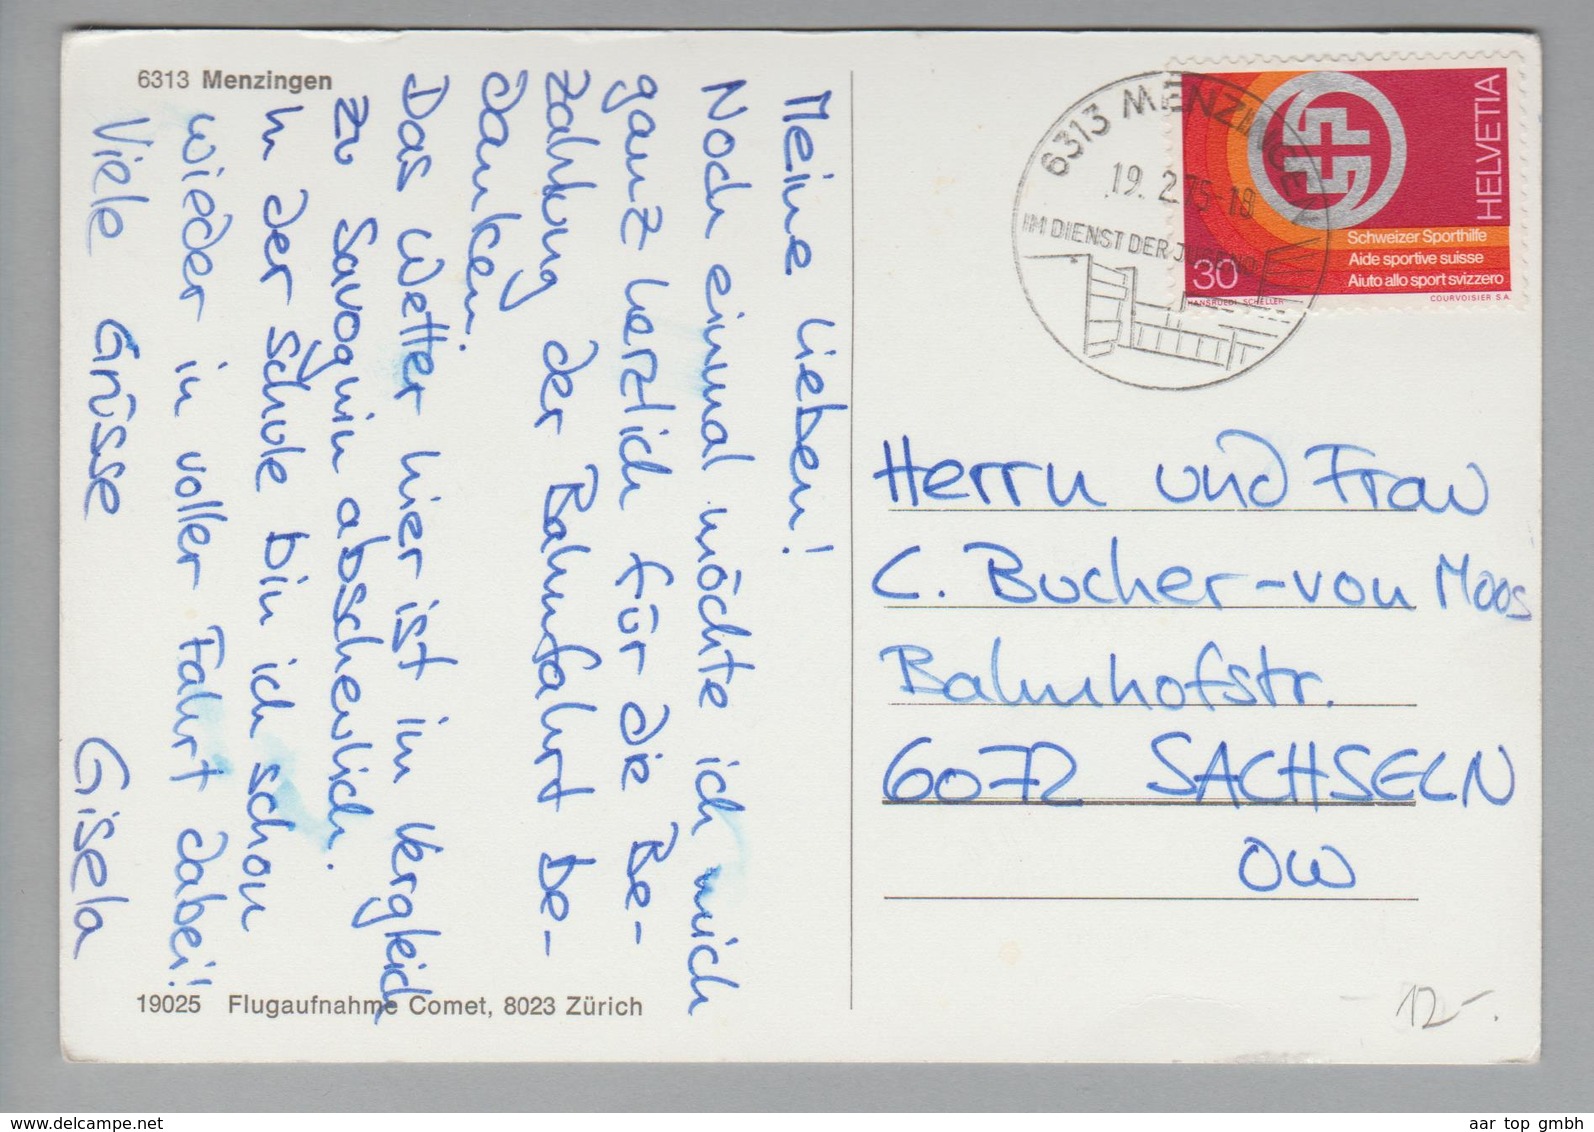 6313 Menzingen
Meine Lieben!
Noch einmal möchte ich mich
ganz herzlich für die Be-
zahlung der Bahnfahrt be-
danken.
Das Wetter hier ist im Vergleich
zu Savognin abscheulich.
In der Schule bin ich schon
wieder in voller Fahrt dabei!
Viele Grüsse Gisela
19025 Flugaufnahme Comet, 8023 Zürich
6313 MENZINGEN
19. 2. 75-18
IM DIENST DER JUGEND
HELVETIA
Schweizer Sporthilfe
Aide sportive suisse
Aiuto allo sport svizzero
30
HANSRUEDI SCHELLER
COURVOISIER S.A.
Herrn und Frau
C. Bucher-von Moos
Bahnhofstr.
6072 SACHSELN
OW
12.-
www.delcampe.net
aar top gmbh